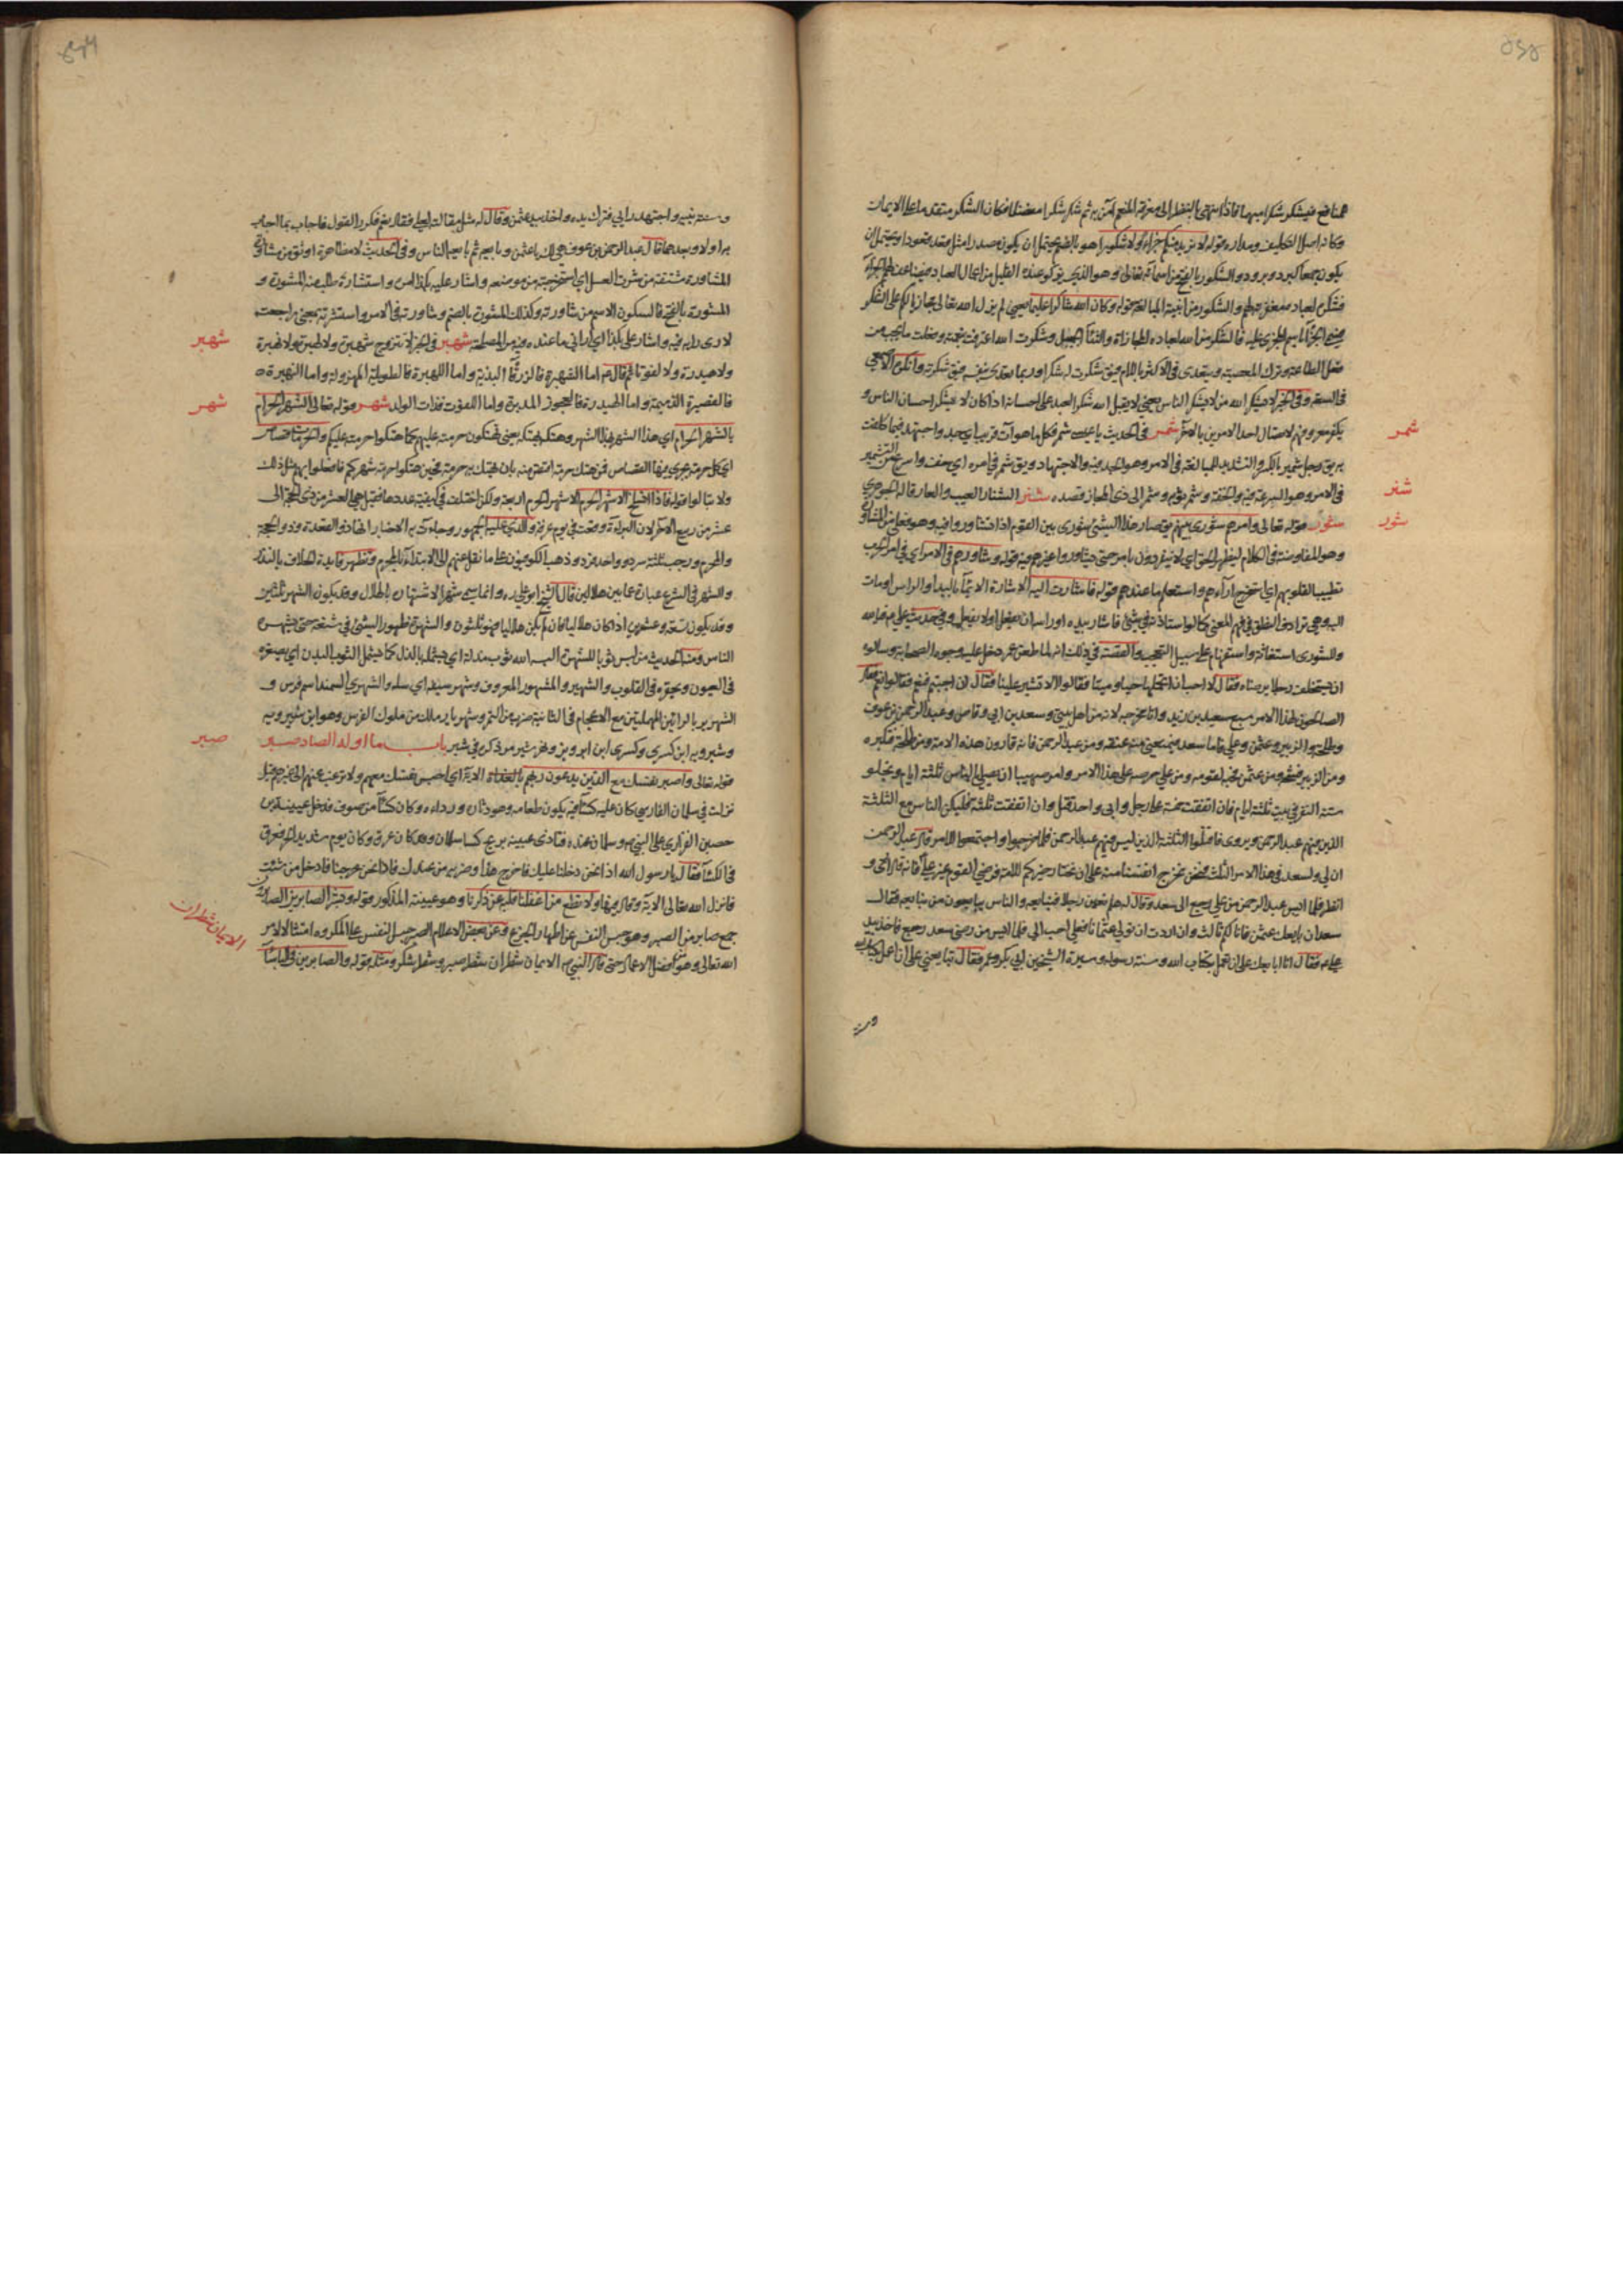 شمر
شنر
شور
المنافع فيشكر شكرا مبهما فاذا انتهى بالنظر الى معرفة المنعم آمن به ثم شكر شكرا مفصلا فكان الشكر متقدما على الايمان
وكانه اصل التكليف ومداره قوله لا نريد منكم جزاء ولا شكورا هو بالضم يحتمل ان يكون مصدرا مثل قعد قعودا ويحتمل ان
يكون جمعا كبرد وبرود والشكور بالفتح من اسمائه تعالى وهو الذي يزكو عنده القليل من اعمال العباد فيضاعف لهم الجزاء
فشكره لعباده مغفرته لهم والشكور من ابنية المبالغة قوله وكان الله شاكرا عليما يعني لم يزل الله تعالى مجازيا لكم على الشكر
فسمى الجزاء باسم المجزى عليه فالشكر من الله لعباده المجازاة والثناء الجميل وشكرت الله اعترفت بنعمته وفعلت ما يجب من
فعل الطاعة وترك المعصية ويتعدى في الاكثر باللام فيق شكرت له شكرا وربما تعدى بنفسه فيق شكرته وانكره الاصمعي
في السعة وفي الخبر لا يشكر الله من لا يشكر الناس يعني لا يقبل الله شكر العبد على احسانه اذا كان لا يشكر احسان الناس و
يكفر معروفهم لاتصال احد الامرين بالاخر شمر في الحديث يا عيسى شمر فكل ما هو آت قريب اي جد واجتهد فيما كلفت
به يق رجل شمير بالكسر والتشديد للمبالغة في الامر وهو الجد فيه والاجتهاد ويق شمر في امره اي خف واسرع من التشمير
في الامر وهو السرعة فيه والخفة وشمر ثوبه وشمر الى ذي المجاز قصده شنر الشنار العيب والعار قاله الجوهري
شور قوله تعالى وامرهم شورى بينهم يق صار هذا الشيء شورى بين القوم اذا تشاوروا فيه وهو فعلى من التشاور
وهو المفاوضة في الكلام ليظهر الحق اي لا ينفردون بامر حتى يشاوروا غيرهم فيه قوله وشاورهم في الامر اي في امر الحرب
تطييبا لقلوبهم اي استخرج آراءهم واستعلم ما عندهم قوله فاشارت اليه الاشارة الايماء باليد او الراس اومات
اليه وهي ترادف النطق في فهم المعنى كما لو استاذنه في شيء فاشار بيده او راسه ان يفعل او لا يفعل وفي حديث علي ع فيا لله
وللشورى استغاثة واستفهام على سبيل التعجب والقصة في ذلك انه لما طعن عمر دخل عليه وجوه الصحابة وسالوه
ان يستخلف رجلا يرضاه فقال لا احب ان اتحملها حيا وميتا فقالوا الا تشير علينا فقال ان احببتم فنعم فقالوا نعم فقال
الصالحون لهذا الامر سبع سعيد بن زيد وانا مخرجه لانه من اهل بيتي وسعد بن ابي وقاص وعبد الرحمن بن عوف
وطلحة والزبير وعثمن وعلي فاما سعد فيمنعني منه عنفه ومن عبد الرحمن فانه قارون هذه الامة ومن طلحة فتكبره
ومن الزبير فشحه ومن عثمن حبه لقومه ومن علي حرصه على هذا الامر وامر صهيبا ان يصلي بالناس ثلثة ايام ويخلو
ستة النفر في بيت ثلثة ايام فان اتفقت خمسة على رجل وابى واحد قتل وان اتفقت ثلثة فليكن الناس مع الثلثة
الذين فيهم عبد الرحمن ويروى فاقتلوا الثلثة الذين ليس فيهم عبد الرحمن فلما خرجوا واجتمعوا للامر قال عبد الرحمن
ان لي ولسعد في هذا الامر الثلث فنحن نخرج انفسنا منه على ان نختار خيركم للامة فرضي القوم غير علي فانه قال ارى و
انظر فلما ايس عبد الرحمن من علي رجع الى سعد وقال له هلم نعين رجلا فنبايعه والناس يبايعون من نبايعه فقال
سعد ان بايعك عثمن فانا لكم ثالث وان اردت ان تولي عثمن فعلي احب الي فلما ايس من رضى سعد رجع فاخذ بيد
علي ع فقال انا ابايعك على ان تعمل بكتاب الله وسنة رسوله وسيرة الشيخين ابي بكر وعمر فقال تبايعني على ان اعمل بكتاب الله
وسنة
وسنة نبيه واجتهد رايي فترك يده واخذ بيد عثمن وقال له مثل مقالته لعلي فقال نعم فكرر القول فاجاب بما اجاب
به اولا وبعدها قال عبد الرحمن بن عوف هي لك يا عثمن وبايعه ثم بايعه الناس وفي الحديث لا مظاهرة اوثق من مشاورة
المشاورة مشتقة من شرت العسل اي استخرجته من موضعه واشار عليه بكذا امره واستشاره طلب منه المشورة و
المشورة بالفتح فالسكون الاسم من شاورته وكذلك المشورة بالضم وشاورته في الامر واستشرته بمعنى راجعته
لارى رايه فيه واشار علي بكذا اي اراني ما عنده فيه من المصلحة شهبر في الخبر لا تتزوج شهبرة ولا لهبرة ولا نهبرة
ولا هيدرة ولا لفوتا ثم قال ع اما الشهبرة فالزرقاء البذية واما اللهبرة فالطويلة المهزولة واما النهبرة
فالقصيرة الذميمة واما الهيدرة فالعجوز المدبرة واما اللفوت فذات الولد شهر قوله تعالى الشهر الحرام
بالشهر الحرام اي هذا الشهر بهذا الشهر وهتكه بهتكه يعني تهتكون حرمته عليهم كما هتكوا حرمته عليكم والحرمات قصاص
اي كل حرمة يجري فيها القصاص فمن هتك حرمة اقتص منه بان يهتك به حرمة فحين هتكوا حرمة شهركم فافعلوا بهم مثل ذلك
ولا تبالوا قوله فاذا انسلخ الاشهر الحرم الاشهر الحرم اربعة ولكن اختلف في كيفية عددها فقيل هي العشر من ذي الحجة الى
عشر من ربيع الآخر لان البراءة وقعت في يوم عرفة والذي عليه الجمهور وجاءت به الاخبار انها ذو القعدة وذو الحجة
والمحرم ورجب ثلثة سرد وواحد فرد وذهب الكوفيون على ما نقل عنهم الى الابتداء بالمحرم وتظهر فايدة الخلاف بالنذر
والشهر في الشرع عبارة عما بين هلالين قال الشيخ ابو علي ره وانما سمي شهرا لاشتهاره بالهلال وقد يكون الشهر ثلثين
وقد يكون تسعة وعشرين اذا كان هلاليا فان لم يكن هلاليا فهو ثلثون والشهرة ظهور الشيء في شنعة حتى يشهره
الناس ومنه الحديث من لبس ثوبا للشهرة البسه الله ثوب مذلة اي يشمله بالذل كما يشمل الثوب البدن اي يصغره
في العيون ويحقره في القلوب والشهير والمشهور المعروف وشهر سيفه اي سله والشهري السمند اسم فرس و
الشهريز بالرائين المهملتين مع الاعجام في الثانية ضرب من التمر وشهريار ملك من ملوك الفرس وهو ابن شيرويه
وشيرويه ابن كسرى وكسرى ابن ابرويز وهرمز شير مر ذكره في شير باب ما اوله الصاد صبر
قوله تعالى واصبر نفسك مع الذين يدعون ربهم بالغداة الاية اي احبس نفسك معهم ولا ترغب عنهم الى غيرهم قيل
نزلت في سلمان الفارسي كان عليه كساء فيه يكون طعامه وهو دثاره ورداءه وكان كساء من صوف فدخل عيينة بن
حصين الفزاري على النبي ص وسلمان عنده فتاذى عيينة بريح كساء سلمان وقد كان عرق وكان يوم شديد الحر فعرق
في الكساء فقال يا رسول الله اذا نحن دخلنا عليك فاخرج هذا وضربه من عندك فاذا نحن خرجنا فادخل من شئت
فانزل الله تعالى الاية وقال فيها ولا تطع من اغفلنا قلبه عن ذكرنا وهو عيينة المذكور قوله وبشر الصابرين الصابرون
جمع صابر من الصبر وهو حبس النفس عن اظهار الجزع وعن بعض الاعلام الصبر حبس النفس على المكروه امتثالا لامر
الله تعالى وهو من افضل الاعمال حتى قال النبي ص الايمان شطران شطر صبر وشطر شكر ومثله قوله والصابرين في الباساء
شهبر
شهر
صبر
الايمان شطران